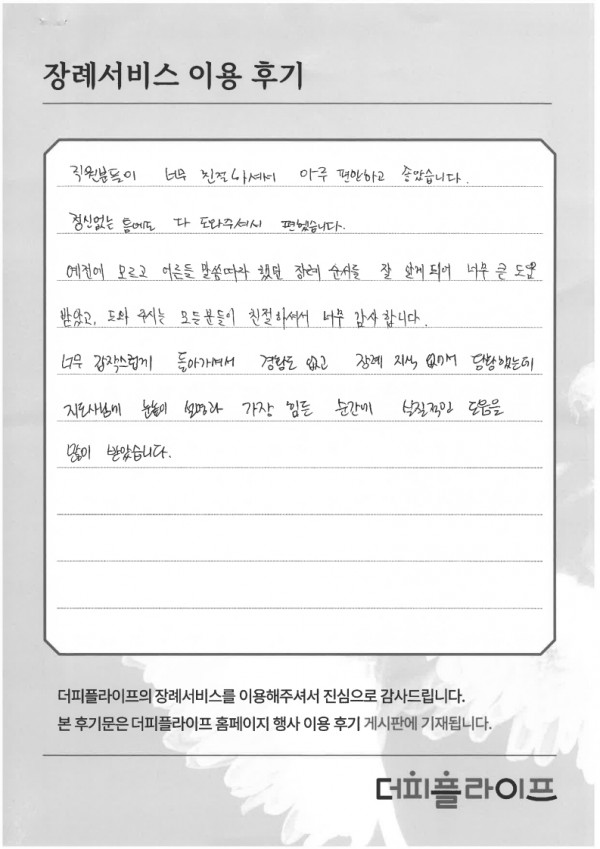 장례서비스 이용 후기
직원분들이 너무 친절하셔서 아주 편안하고 좋았습니다.
정신없는 틈에도 다 도와주셔서 편했습니다.
예전에 모르고 어른들 말씀따라 했던 장례 순서를 잘 알게 되어 너무 큰 도움
받았고, 도와 주시는 모든분들이 친절하셔서 너무 감사합니다.
너무 갑작스럽게 돌아가셔서 경황도 없고 장례 지식 없어서 당황했는데
지도사님에 설명과 가장 힘든 순간에 실질적인 도움을
많이 받았습니다.
더피플라이프의 장례서비스를 이용해주셔서 진심으로 감사드립니다.
본 후기문은 더피플라이프 홈페이지 행사 이용 후기 게시판에 기재됩니다.
더피플라이프